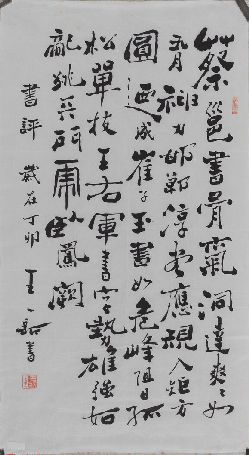 蔡邕書骨氣洞達爽爽如
有神力邯鄲淳書應規入矩方
圓迺成崔子玉書如危峰阻日孤
松單枝王右軍書字勢雄強如
龍跳天門虎臥鳳闕
書評 歲在丁卯 王書